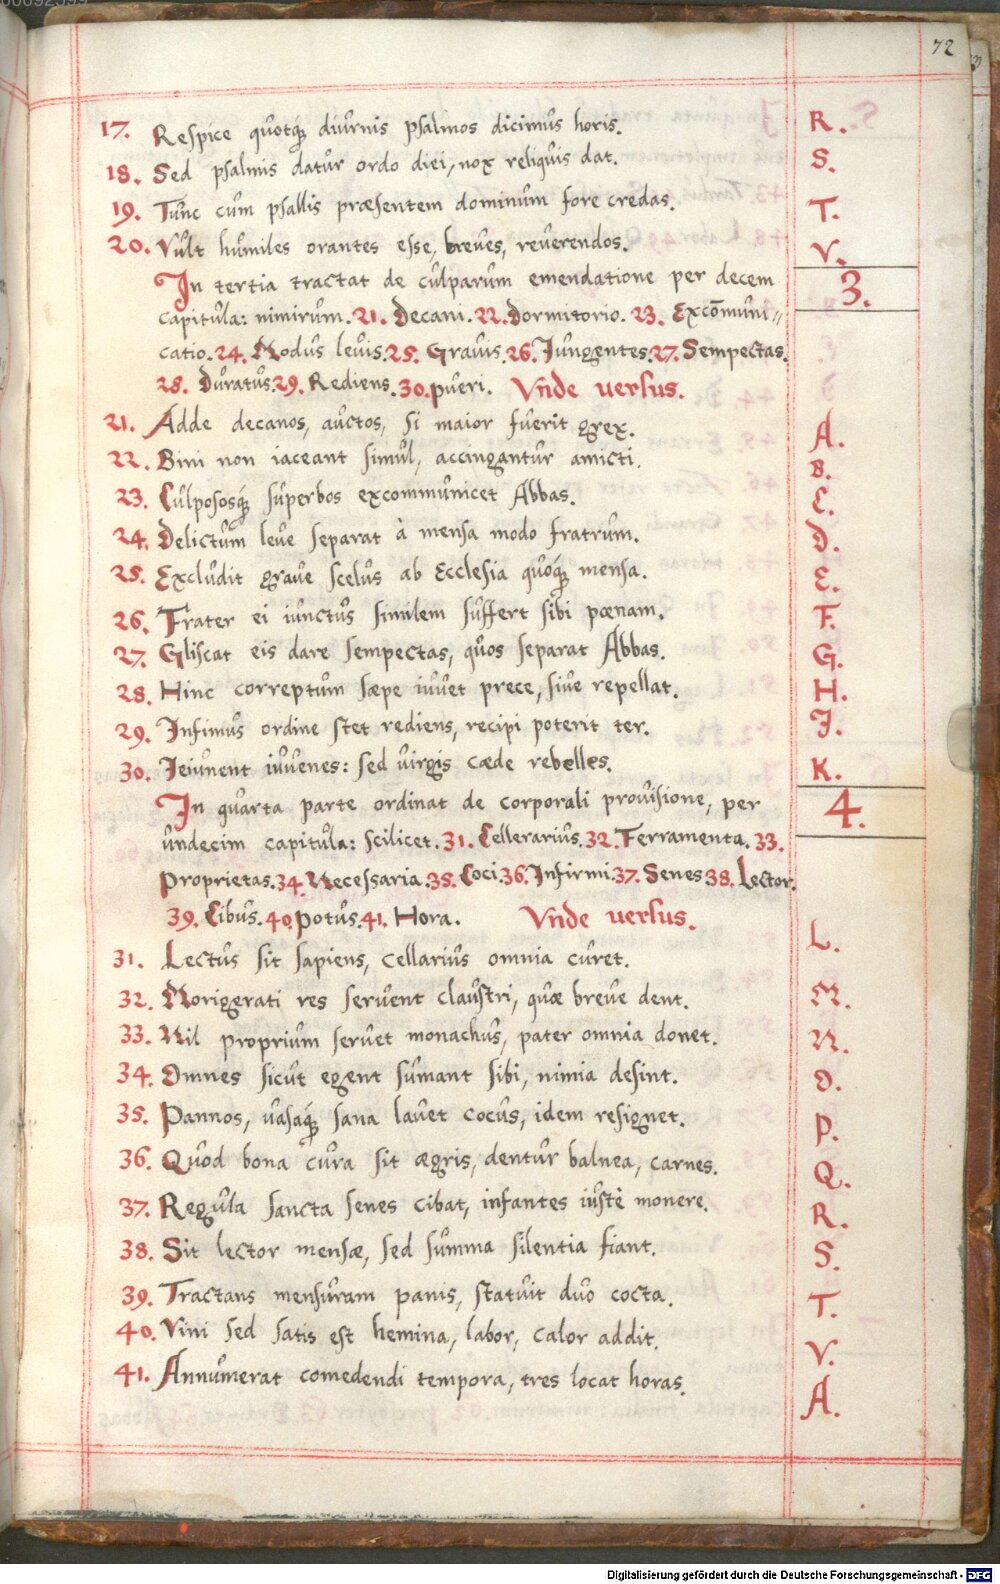 72
17. Respice quotq́ȝ diurnis psalmos dicimus horis. R.
18. Sed psalmis datur ordo diei, nox reliquis dat. S.
19. Tunc cum psallis præsentem dominum fore credas. T.
20. Vult humiles orantes esse, breves, reverendos. V.
In tertia tractat de culparum emendatione per decem 3.
capitula: nimirum. 21. Decani. 22. Dormitorio. 23. Excōmuni//
catio. 24. Modus levis. 25. Gravis. 26. Jungentes. 27. Sempectas.
28. Duratus. 29. Rediens. 30. pueri. Vnde versus.
21. Adde decanos, auctos, si maior fuerit grex. A.
22. Bini non iaceant simul, accingantur amicti. B.
23. Culpososq́ȝ superbos excommunicet Abbas. C.
24. Delictum leve separat à mensa modo fratrum. D.
25. Excludit grave scelus ab Ecclesia quoq́ȝ mensa. E.
26. Frater ei iunctus similem suffert sibi pœnam. F.
27. Gliscat eis dare sempectas, quos separat Abbas. G.
28. Hinc correptum sæpe iuvet prece, sive repellat. H.
29. Infimus ordine stet rediens, recipi poterit ter. J.
30. Jeiunent iuvenes: sed virgis cæde rebelles. K.
In quarta parte ordinat de corporali provisione, per 4.
undecim capitula: scilicet. 31. Cellerarius. 32. Ferramenta. 33.
Proprietas. 34. Necessaria. 35. Coci. 36. Infirmi. 37. Senes 38. Lector.
39. Cibus. 40. Potus. 41. Hora. Vnde versus.
31. Lectus sit sapiens, cellarius omnia curet. L.
32. Morigerati res servent claustri, quæ breve dent. M.
33. Nil proprium servet monachus, pater omnia donet. N.
34. Omnes sicut egent sumant sibi, nimia desint. O.
35. Pannos, vasaq́ȝ sana lavet cocus, idem resignet. P.
36. Quod bona cura sit ægris, dentur balnea, carnes. Q.
37. Regula sancta senes cibat, infantes iustè monere. R.
38. Sit lector mensæ, sed summa silentia fiant. S.
39. Tractans mensuram panis, statuit duo cocta. T.
40. Vini sed satis est hemina, labor, calor addit. V.
41. Annumerat comedendi tempora, tres locat horas. A.
Digitalisierung gefördert durch die Deutsche Forschungsgemeinschaft - DFG